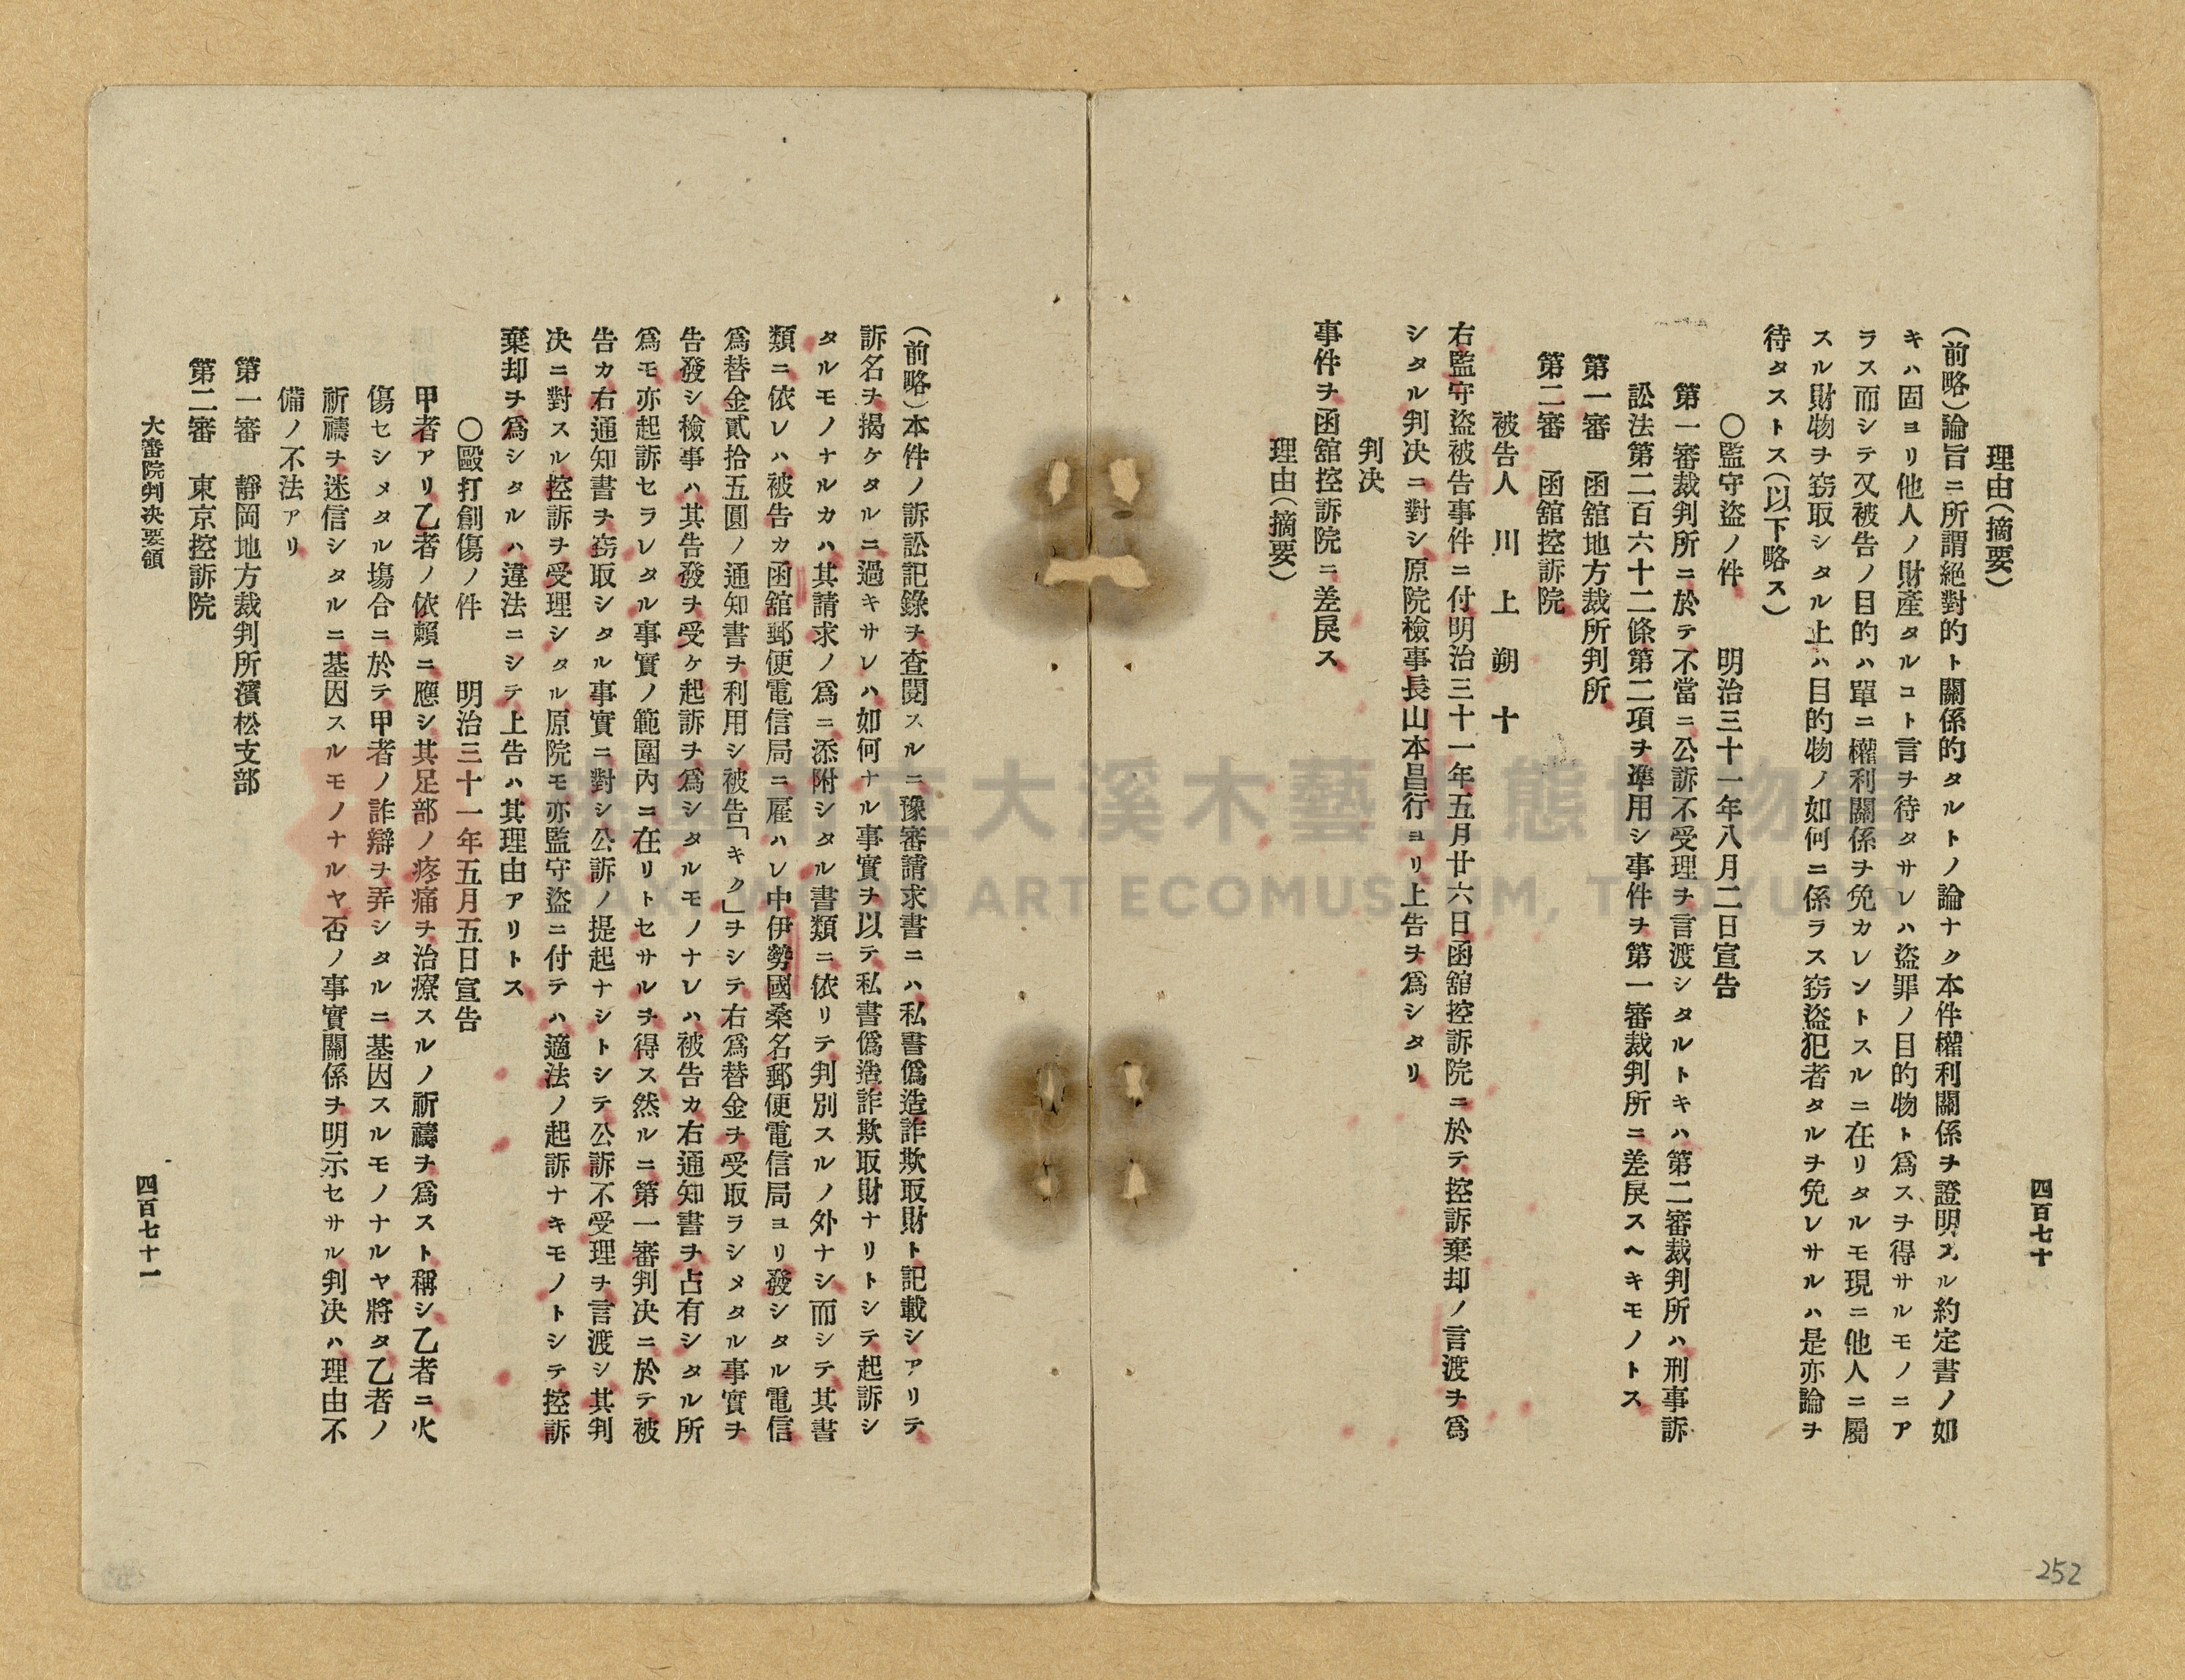 四百七十
理由(摘要)
(前略)論旨ニ所謂絕對的ト關係的タルトノ論ナク本件權利關係ヲ證明スル約定書ノ如
キハ固ヨリ他人ノ財產タルコト言ヲ待タサレハ盜罪ノ目的物ト爲スヲ得サルモノニア
ラス而シテ又被告ノ目的ハ單ニ權利關係ヲ免カレントスルニ在リタルモ現ニ他人ニ屬
スル財物ヲ竊取シタル上ハ目的物ノ如何ニ係ラス竊盜犯者タルヲ免レサルハ是亦論ヲ
待タストス(以下略ス)
〇監守盜ノ件 明治三十一年八月二日宣告
第一審裁判所ニ於テ不當ニ公訴不受理ヲ言渡シタルトキハ第二審裁判所ハ刑事訴
訟法第二百六十二條第二項ヲ準用シ事件ヲ第一審裁判所ニ差戾スヘキモノトス
第一審 函舘地方裁所判所
第二審 函舘控訴院
被告人 川上朔十
右監守盜被告事件ニ付明治三十一年五月廿六日函舘控訴院ニ於テ控訴棄却ノ言渡ヲ爲
シタル判決ニ對シ原院檢事長山本昌行ヨリ上告ヲ爲シタリ
判決
事件ヲ函舘控訴院ニ差戾ス
理由(摘要)
(前略)本件ノ訴訟記錄ヲ查閱スルニ豫審請求書ニハ私書僞造詐欺取財ト記載シアリテ
訴名ヲ揭ケタルニ過キサレハ如何ナル事實ヲ以テ私書僞造詐欺取財ナリトシテ起訴シ
タルモノナルカハ其請求ノ爲ニ添附シタル書類ニ依リテ判別スルノ外ナシ而シテ其書
類ニ依レハ被告カ函舘郵便電信局ニ雇ハレ中伊勢國桑名郵便電信局ヨリ發シタル電信
爲替金貳拾五圓ノ通知書ヲ利用シ被告「キク」ヲシテ右爲替金ヲ受取ラシメタル事實ヲ
告發シ檢事ハ其告發ヲ受ケ起訴ヲ爲シタルモノナレハ被告カ右通知書ヲ占有シタル所
爲モ亦起訴セラレタル事實ノ範圍內ニ在リトセサルヲ得ス然ルニ第一審判決ニ於テ被
告カ右通知書ヲ竊取シタル事實ニ對シ公訴ノ提起ナシトシテ公訴不受理ヲ言渡シ其判
決ニ對スル控訴ヲ受理シタル原院モ亦監守盜ニ付テハ適法ノ起訴ナキモノトシテ控訴
棄却ヲ爲シタルハ違法ニシテ上告ハ其理由アリトス
〇毆打創傷ノ件 明治三十一年五月五日宣告
甲者アリ乙者ノ依賴ニ應シ其足部ノ疼痛ヲ治療スルノ祈禱ヲ爲スト稱シ乙者ニ火
傷セシメタル塲合ニ於テ甲者ノ詐辯ヲ弄シタルニ基因スルモノナルヤ將タ乙者ノ
祈禱ヲ迷信シタルニ基因スルモノナルヤ否ノ事實關係ヲ明示セサル判決ハ理由不
備ノ不法アリ
第一審 靜岡地方裁判所濱松支部
第二審 東京控訴院
大審院判決要領
四百七十一
252
桃園市立大溪木藝生態博物館
DAXI WOOD ART ECOMUSEUM, TAOYUAN